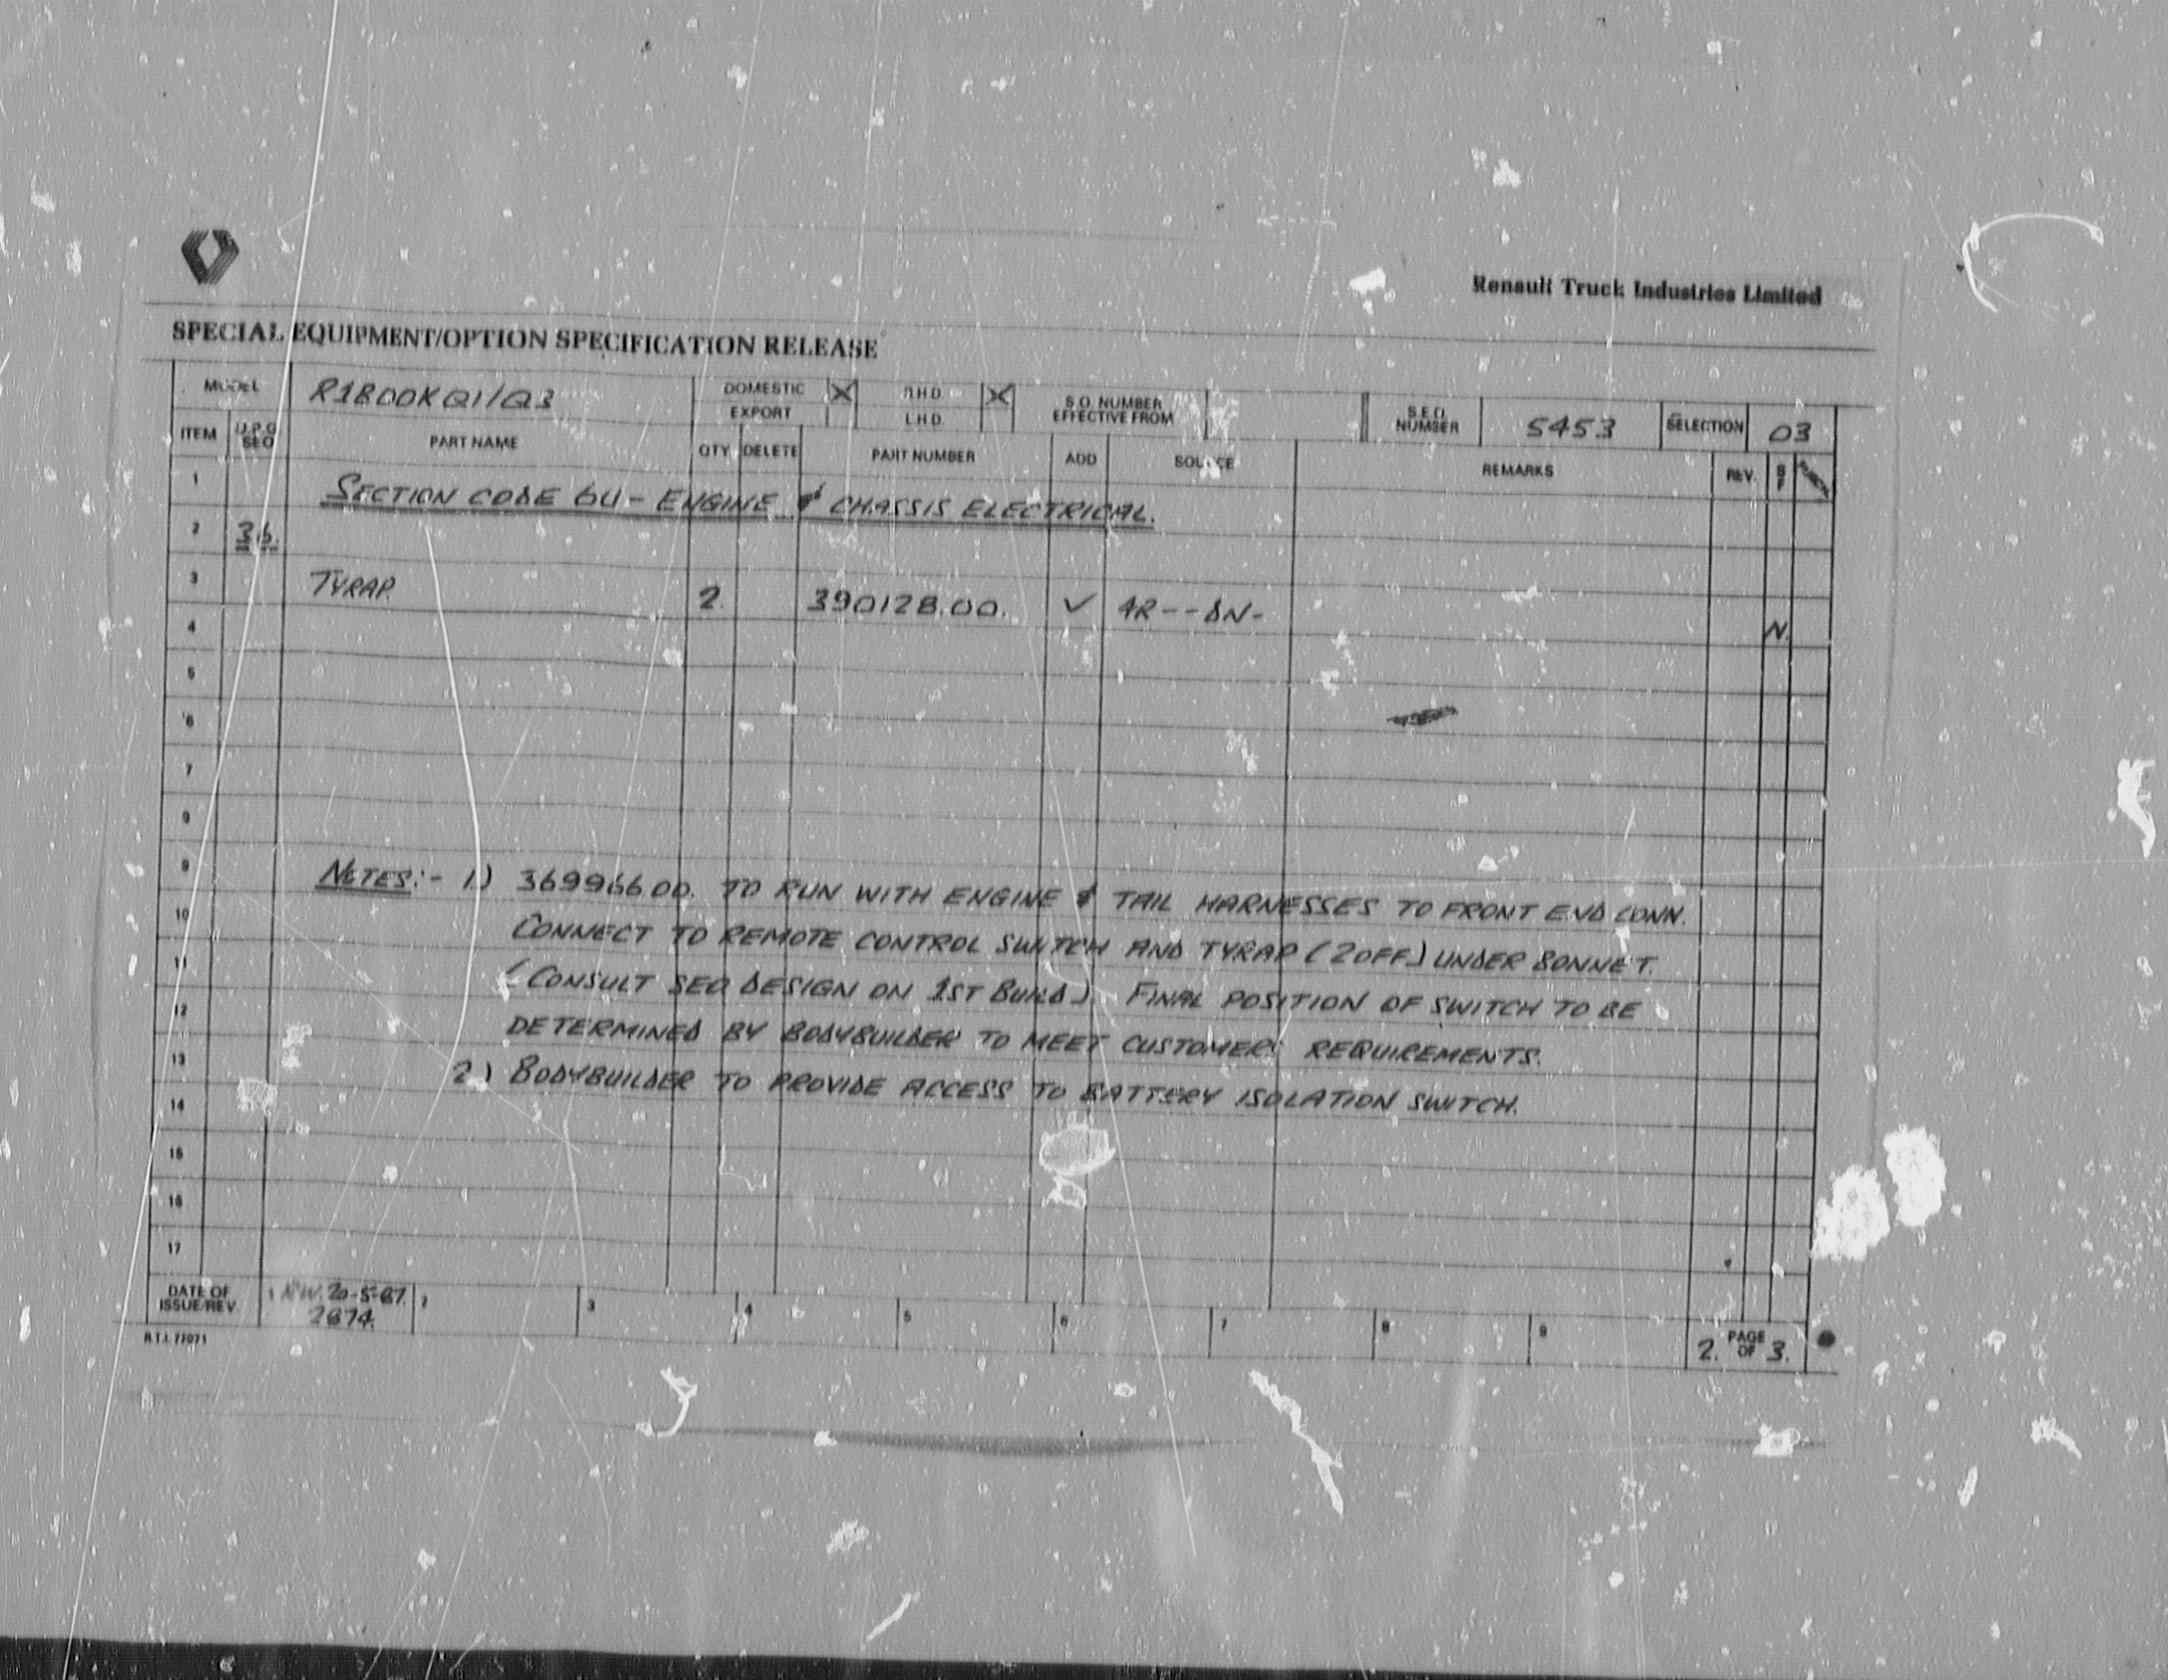 Renault Truck Industries Limited
SPECIAL EQUIPMENT/OPTION SPECIFICATION RELEASE
MODEL R1800KQ1/Q3 DOMESTIC X R.H.D. X S.O. NUMBER EFFECTIVE FROM S.E.O. NUMBER 5453 SELECTION 03
EXPORT L.H.D.
ITEM U.P.G. SEQ PART NAME QTY DELETE PART NUMBER ADD SOURCE REMARKS REV. S F
1 SECTION CODE 6U - ENGINE & CHASSIS ELECTRICAL.
2 36.
3 TYRAP. 2. 390128.00. ✓ AR--DN- N.
4
5
6
7
8
9 NOTES:- 1) 369966.00. TO RUN WITH ENGINE & TAIL HARNESSES TO FRONT END CONN.
10 CONNECT TO REMOTE CONTROL SWITCH AND TYRAP (2OFF) UNDER BONNET.
11 (CONSULT SEO DESIGN ON 1ST BUILD). FINAL POSITION OF SWITCH TO BE
12 DETERMINED BY BODYBUILDER TO MEET CUSTOMERS REQUIREMENTS.
13 2) BODYBUILDER TO PROVIDE ACCESS TO BATTERY ISOLATION SWITCH.
14
15
16
17
DATE OF ISSUE/REV. 1 RW. 20-5-87. 2 3 4 5 6 7 8 9
2674.
R.T.I. 77071 2. PAGE OF 3.